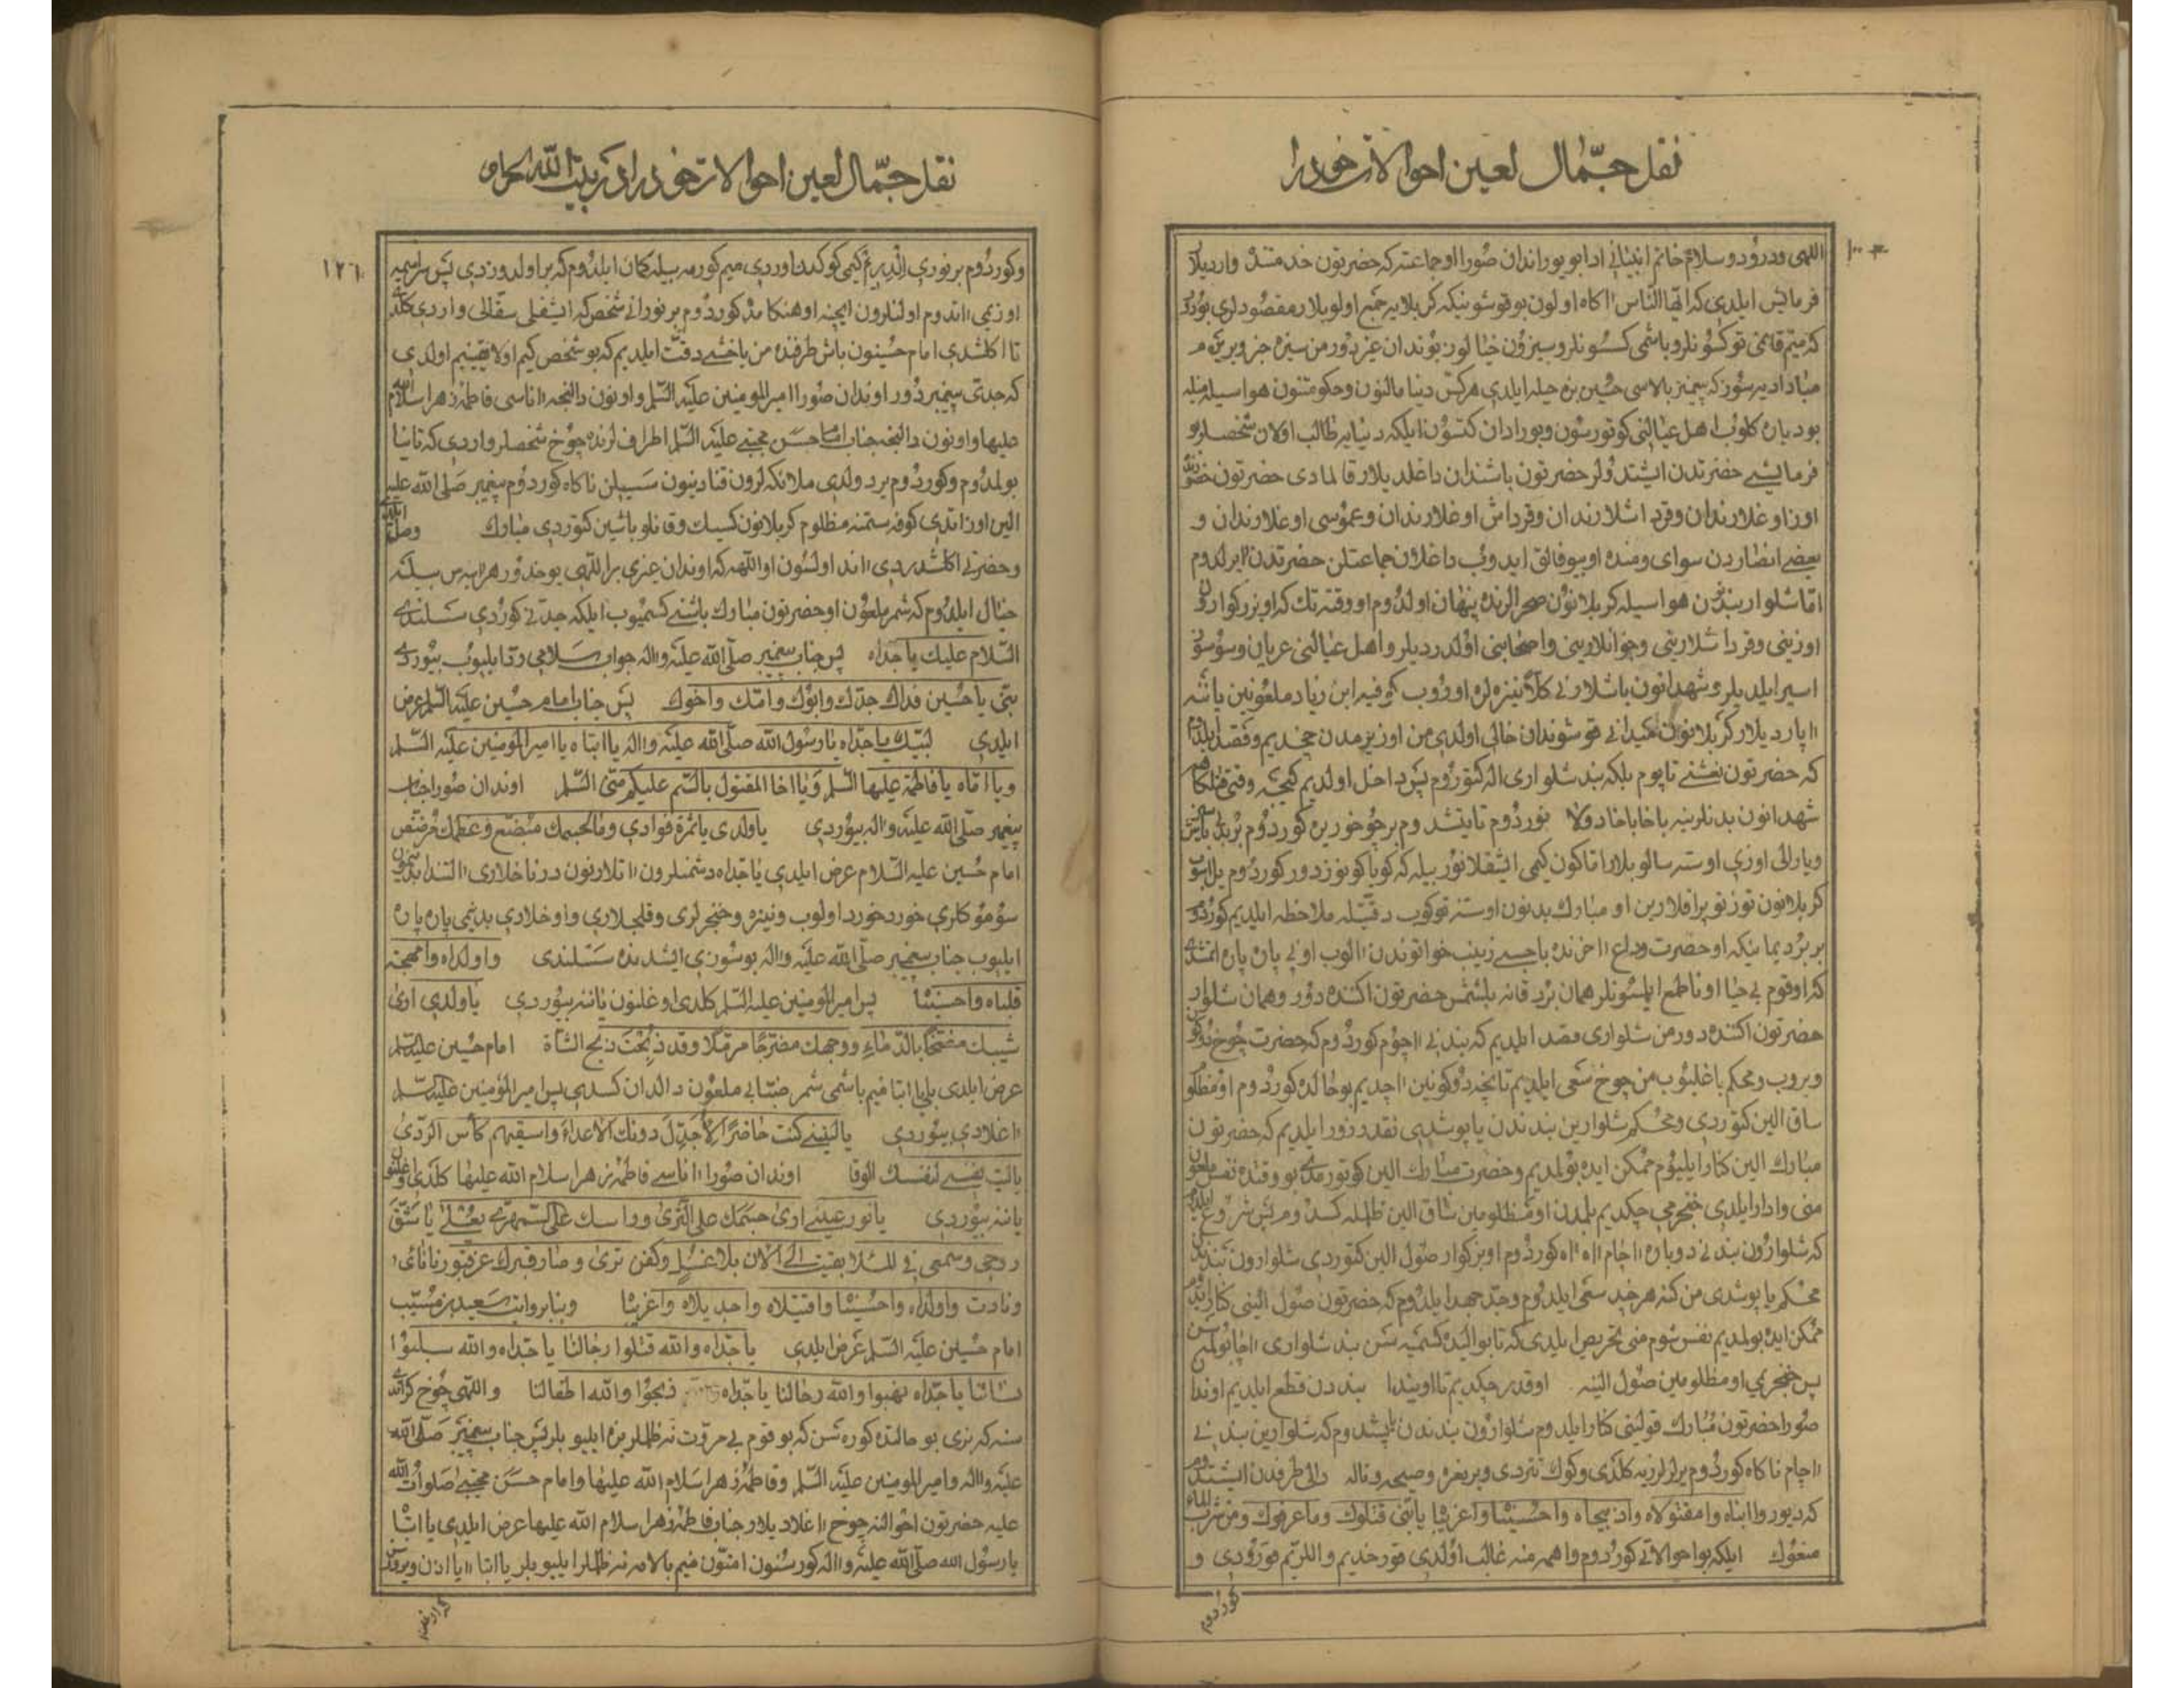 نقل جمّال لعین احوالات خود را
اللهی ودرود و سلام خاتم انبیانی ادا بویوراندان صورا او جماعته که حضرتون خدمتنده واردیلار
فرمایش ایلدی که ایّها النّاس اکاه اولون بو قوشونیکه کربلایه جمع اولوبلار مقصودلری بودور
که منیم قانمی توکسونلر و باشمی کسسونلر و سیزون خیالوز بوندان غیر دور من سیزه جز ویریرم
مبادا دیه‌سوز که پیغمبر بالاسی حسین بزه حیله ایلدی هرکس دنیا مالنون و حکومتنون هواسیله منله
بو دیاره کلوب اهل عیالنی کوتورسون و بورادان کتسون ایلکه دنیایه طالب اولان شخصلر بو
فرمایشی حضرتدن ایشتدولر حضرتون باشندان داغلدیلار قالمادی حضرتون
اوز اوغلارندان و قرداشلارندان و قرداش اوغلارندان و عموسی اوغلارندان و
بعضی انصاردن سوای و منده او بیوفالق ایدوب داغلان جماعتلن حضرتدن ایرلدوم
امّا شلوار بندنون هواسیله کربلانون صحرالرنده پنهان اولدوم او وقته تک که او بزرکوارون
اوزینی و قرداشلارینی و جوانلارینی و اصحابنی اولدردیلر و اهل عیالنی عریان و سوسوز
اسیر ایلدیلر و شهدانون باشلارنی کلاً نیزه‌لره اوروب کوفیه ابن زیاد ملعونین یاننه
اپاردیلار کربلانون میدانی قوشوندان خالی اولدی من اوز یریمدن چخدیم و قصد ایلدوم
که حضرتون نعشنی تاپوم بلکه بند شلواری اله کتوروم پس داخل اولدیم کیجه وقتی قتلکاهه
شهدانون بدنلرینه باخا باخا دولانوردوم تا یتشدوم بر چوخور یره کوردوم بر بدن باشسز
و یارالی اوزی اوسته سالوبلار امّا کون کیمی ایشقلانور بیله که کویا کونوزدور کوردوم یل اسوب
کربلانون توز توپراقلارین او مبارک بدنون اوسته توکوب دقّتیله ملاحظه ایلدیم کوردوم
بر برد یمانیکه او حضرت وداع اخرنده باجسی زینب خواتوندن الوب اونی پاره پاره ایتمشدی
که او قوم بی‌حیا اونا طمع ایلمسونلر همان برد قانه بلشمش حضرتون اکننده دور و همان شلوار
حضرتون اکننده دور من شلواری قصد ایلدیم که بندنی اچوم کوردوم که حضرت چوخ دوکون
ویروب و محکم باغلیوب من چوخ سعی ایلدیم تا نچه دوکونین اچدیم بو حالده کوردوم او مظلوم
ساق الین کتوردی و محکم شلوارین بندندن یاپوشدی نقدر زور ایلدیم که حضرتون
مبارک الین کنار ایلیوم ممکن ایده بولمدیم و حضرت مبارک الین کوتورمدی بو وقتده نفس ملعون
منی وادار ایلدی خنجرمی چکدیم بلمدن او مظلومین ساق الین ظلمله کسدوم پس شروع ایلدوم
که شلوارون بندنی دوباره اچام اه اه کوردوم او بزرکوار صول الین کتوردی شلوارون بندندن
محکم یاپوشدی من کنه هرچند سعی ایلدوم و جدّ جهد ایلدوم که حضرتون صول الینی کنار ایدم
ممکن ایده بولمدیم نفس شوم منی تحریص ایلدی که تا بو الیده کسمیه‌سن بند شلواری اچا بولمسن
پس خنجری او مظلومین صول الینه اوقدر چکدیم تا اونیدا بنددن قطع ایلدیم اوندان
صورا حضرتون مبارک قولینی کنار ایلدوم شلوارون بندندن یاپشدوم که شلوارین بندنی
اچام ناکاه کوردوم یر لرزیه کلدی و کوک تتردی و بر نعره و صیحه و ناله دالی طرفدن ایشتدوم
که دیور وا ابتاه وا مقتولاه وا ذبیحاه وا حسیناه وا غریباه یا بنیّ قتلوک و ما عرفوک و من شرب الماء
منعوک ایلکه بو احوالاتی کوردوم واهمه منه غالب اولدی قورخدیم و اللریم قورودی و
کوردوم
نقل جمّال لعین احوالات خود را در بیت الله الحرام
۱۲٦
و کوردوم بر نوری ایلدیریم کیمی کوکدن اوردی
اوزیمی اتدوم اولنلرون ایچینه او هنکامده کوردوم بر نورانی شخص که ایشقلی سقّالی واردی کلدی
تا اکلشدی امام حسینون باش طرفنده من یاخشی دقّت ایلدیم که بو شخص کیم اولا یقینیم اولدی
که جدّی پیغمبردور اوندان صورا امیرالمومنین علیه السّلم و اونون دالنجه اناسی فاطمهٔ زهرا سلام الله
علیها و اونون دالنجه جناب امام حسن مجتبی علیه السّلم اطرافلرنده چوخ شخصلر واردی که تانیا
بولمدوم و کوردوم یرد ولدی ملائکه‌لرون قنادینون سسیلن ناکاه کوردوم پیغمبر صلّی الله علیه
الین اوزاتدی کوفه سمتنه مظلوم کربلانون کسیک و قانلو باشین کتوردی مبارک وصل ایلدی
و حضرتی اکلشدردی اند اولسون او اللهه که اوندان غیری بر اللهی یوخدور هر ایسه‌سن بیلنه
خیال ایلدوم که شمر ملعون او حضرتون مبارک باشنی کسمیوب ایلکه جدّنی کوردی سسلندی
السّلام علیک یا جدّاه پس جناب پیغمبر صلّی الله علیه و اله جواب سلامی ردّ ایلیوب بیوردی
بنیّ یا حسین فداک جدّک و ابوک و امّک و اخوک پس جناب امام حسین علیه السّلم عرض
ایلدی لبّیک یا جدّاه یا رسول الله صلّی الله علیه و اله یا ابتاه یا امیرالمومنین علیه السّلم
و یا امّاه یا فاطمة علیها السّلم و یا اخا المقتول بالسّم علیکم منّی السّلم اوندان صورا جناب
پیغمبر صلّی الله علیه و اله بیوردی یا ولدی یا ثمرة فوادی و ما لجسمک مبضّع و عظمک مرضّض
امام حسین علیه السّلام عرض ایلدی یا جدّاه دشمنلرون اتلارنون درناخلاری التندا بدنمون
سوموکلری خورد خورد اولوب و نیزه و خنجرلری و قلجلاری و اوخلاری بدنمی پاره پاره
ایلیوب جناب پیغمبر صلّی الله علیه و اله بو سوزی ایشدنده سسلندی وا ولداه وا مهجة
قلباه وا حسیناه پس امیرالمومنین علیه السّلم کلدی اوغلنون یاننه بیوردی یا ولدی اری
شیبک مخضّبا بالدّماء و وجهک مضرّجا مرمّلا و قد ذبحت ذبح الشّاة امام حسین علیه السلم
عرض ایلدی بلی یا ابتا منیم باشمی شمر ضبّابی ملعون دالدان کسدی پس امیرالمومنین علیه السّلم
اغلادی بیوردی یا لیتنی کنت حاضرا لاجدّل دونک الاعداء و اسقیهم کأس الرّدی
یا لیت نفسی لنفسک الوقا اوندان صورا اناسی فاطمهٔ زهرا سلام الله علیها کلدی اوغلنون
یاننه بیوردی یا نور عینی اری جسمک علی الثّری و راسک علی السّمهری یعلی یا شقّ
روحی و سمعنی بقیت الی الان بلا غسل و کفن تری و صار قبرک
و نادت وا ولداه وا حسیناه وا قتیلاه وا جدیلاه وا غریباه و بنا بروایت سعید بن مسیّب
امام حسین علیه السّلم عرض ایلدی یا جدّاه والله قتلوا رجالنا یا جدّاه والله سلبوا
نسائنا یا جدّاه نهبوا والله رحالنا یا جدّاه ذبحوا والله اطفالنا واللهی چوخ کراندی
سنه که بزی بو حالتده کوره‌سن که بو قوم بی‌مروّت نه ظلملر بزه ایلیوبلر پس جناب پیغمبر صلّی الله
علیه و اله و امیرالمومنین علیه السّلم و فاطمهٔ زهرا سلام الله علیها و امام حسن مجتبی صلوات الله
علیه حضرتون احوالنه چوخ اغلادیلار جناب فاطمهٔ زهرا سلام الله علیها عرض ایلدی یا ابتا
یا رسول الله صلّی الله علیه و اله کورسنون امّتون منیم بالامه نه ظلملر ایلیوبلر یا ابتا ایا اذن ویرورسن